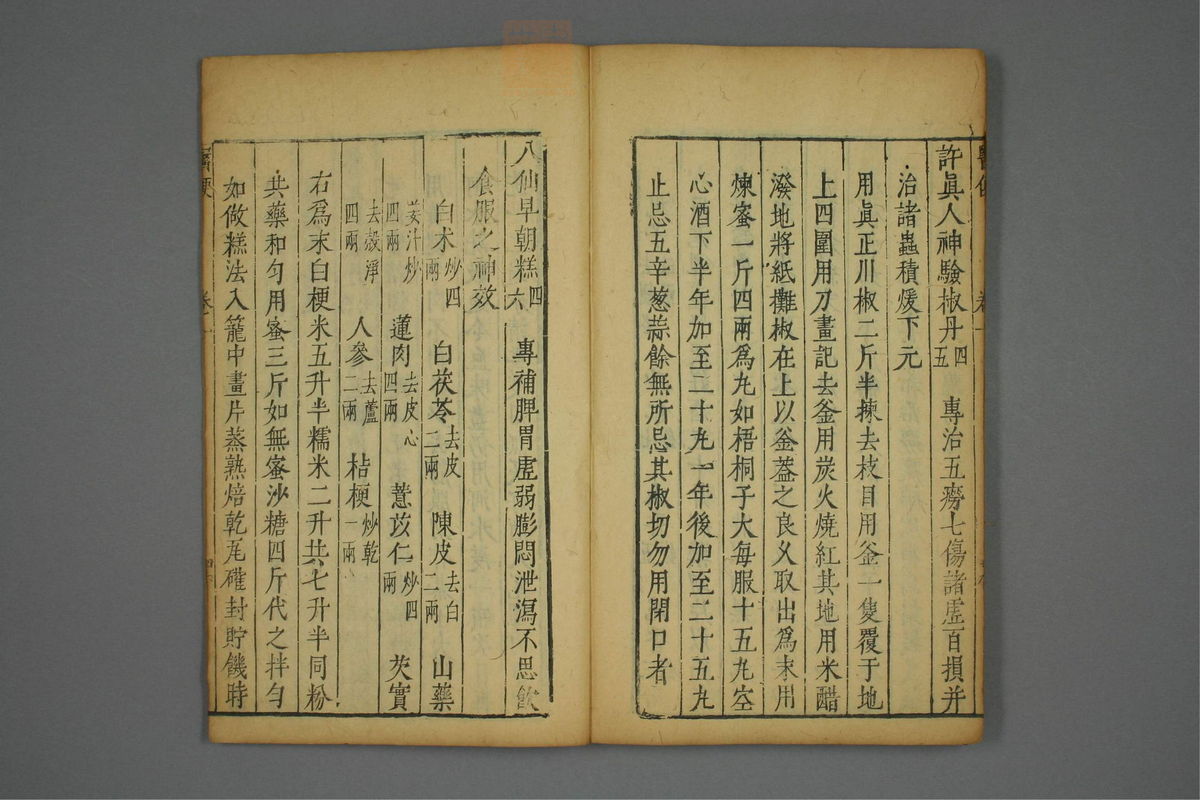 許眞人神驗椒丹四五 專治五癆七傷諸虛百損并
治諸蟲積煖下元
用眞正川椒二斤半揀去枝目用釜一隻覆于地
上四圍用刀畫記去釜用炭火燒紅其地用米醋
潑地將紙攤椒在上以釜蓋之良久取出爲末用
煉蜜一斤四兩爲丸如梧桐子大每服十五丸空
心酒下半年加至二十丸一年後加至二十五丸
止忌五辛葱蒜餘無所忌其椒切勿用閉口者
八仙早朝糕四六 專補脾胃虛弱膨悶泄瀉不思飲
食服之神效
白术炒四兩 白茯苓去皮二兩 陳皮去白二兩 山藥
姜汁炒四兩 蓮肉去皮心四兩 薏苡仁炒四兩 芡實
去殼淨四兩 人參去蘆二兩 桔梗炒乾一兩
右爲末白粳米五升半糯米二升共七升半同粉
共藥和勻用蜜三斤如無蜜沙糖四斤代之拌勻
如做糕法入籠中畫片蒸熟焙乾瓦礶封貯饑時
醫便 卷一